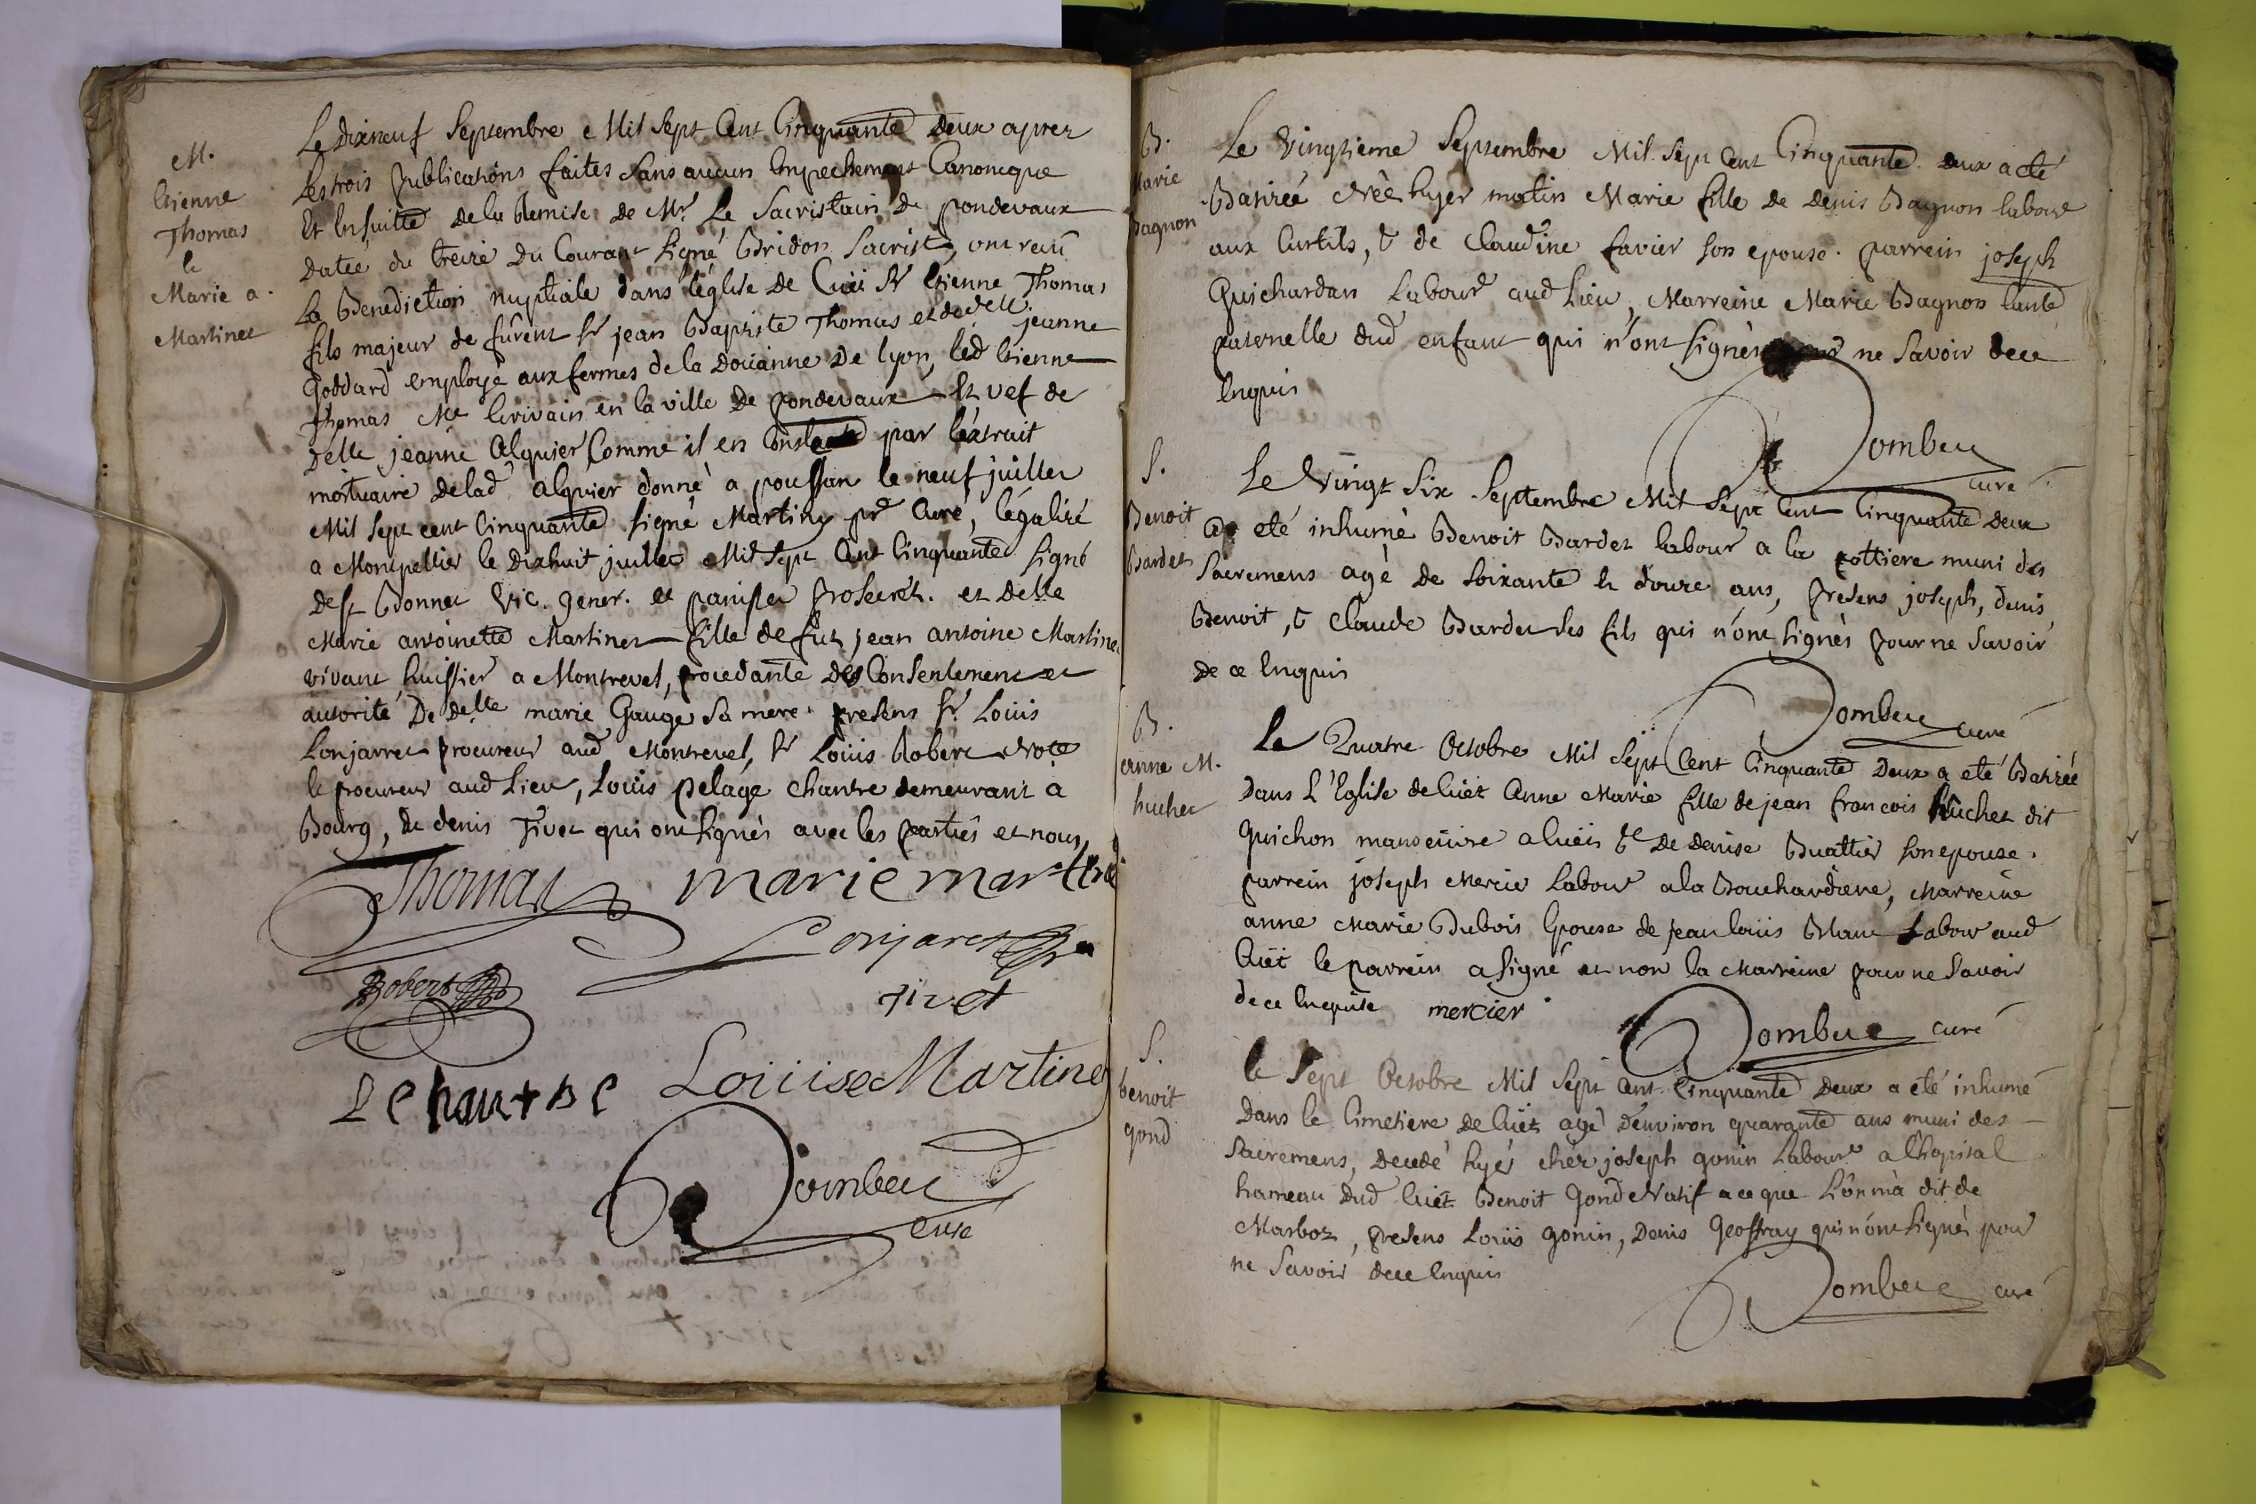 M.
Etienne
Thomas
&
Marie a.
Martinet
Le dixneuf Septembre Mil Sept Cent Cinquante deux aprez
les trois publications faites sans aucun Empechement Canonique
Et Ensuitte de la Remise de Mr. Le Sacristain de pondevaux
datée du treize du Courant signé Bridon Sacrist, ont recû
La Benediction nuptiale dans l'eglise de Cuët Sr Etienne Thomas
fils majeur de fûrent Sr jean Baptiste Thomas et de delle. jeanne
Goddard employé aux fermes de la doüanne de lyon, led Etienne
Thomas Me Ecrivain en la ville de pondevaux Et vef de
delle jeanne Alquier Comme il en par l'extrait
mortuaire delad alquier donné a poussan le neuf juillet
Mil Sept cent Cinquante signé Martiny pr Curé, légalizé
a Montpellier le dixhuit juillet Mil Sept Cent Cinquante signé
de St Bonnet Vic. gener. et prosecret. et delle
Marie antoinette Martinet fille de fut jean antoine Martinet
vivant huissier a Montrevel, procedante des Consentement et
autorité De delle marie Gauge sa mere. presens Sr. Loüis
Lonjarret procureur aud Montrevel, Sr Loüis Robert
& procureur aud Lieu, Loüis pelage chantre demeurant a
Bourg, & denis Tivet qui ont signés avec les partiës et nous
Thomas marie martinet
Lonjaret
Robert
Tivet
Le hantre Loüise Martinet
Dombeu
curé
B.
Marie
Bagnon
Le Vingtieme Septembre Mil Sept Cent Cinquante deux a eté
Batizée Née hyer matin Marie fille de Denis Bagnon labour
aux Curtils, & de Claudine favier son epouse. parrein joseph
Guichardan Labour aud Lieu, Marreine Marie Bagnon tante
paternelle dud enfant qui n'ont signés ne savoir de ce
Enquis
Dombeu
curé
S.
Benoit
Bardet
Le Vingt Six Septembre Mil Sept Cent Cinquante deux
a eté inhumé Benoit Bardet labour a la pottiere muni des
Sacremens agé de soixante & douze ans, presens joseph, denis
Benoit, & Claude Bardet ses fils qui n'ont signés pour ne savoir
de ce Enquis
Dombeu curé
B.
anne M.
huchet
Le Quatre Octobre Mil Sept Cent Cinquante Deux a eté Batizée
Dans L'Eglise de Cuët Anne Marie fille de jean francois huchet dit
Guichon manoeuvre a Cuët & De denise Buattier son epouse.
parrein joseph Mercie Labour a la Bouchardiere, Marreine
anne Marie Dubois Epouse de jean loüis Blanc Labour aud
Cuët le parrein a signé et non la Marreine pour ne savoir
de ce Enquise mercier
Dombeu curé
S.
benoit
gond
Le Sept Octobre Mil Sept Cent Cinquante Deux a eté inhumé
Dans le Cimetiere de Cuët agé D'environ quarante ans muni des
Sacremens, decedé hyér chez joseph gonin Labour a l'hopital
hameau dud Cuët Benoit Gond Natif a ce que L'on m'a dit de
Marboz, presens Loüis gonin, Denis Geoffray qui n'ont signés pour
ne savoir de ce Enquis
Dombeu curé